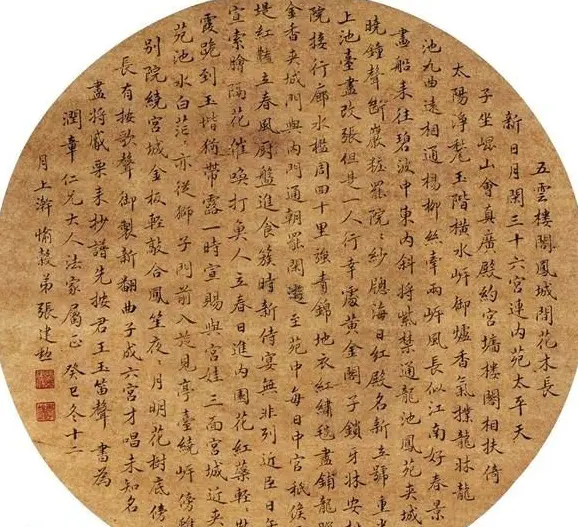 五雲樓閣鳳城間花木長
新日月閑三十六宮連内苑太平天
子坐崐山會真廣殿約宮墻樓閣相扶倚
太陽淨甃玉階橫水岍御爐香氣撲龍牀龍
池九曲遠相通楊柳絲牽兩岍風長似江南好春景
畫船來往碧波中東内斜將紫禁通龍池鳳苑夾城
曉鐘聲斷嚴粧罷院〃紗牕海日紅殿名新立號重光
上池臺盡改張但是一人行幸處黃金閣子鎖牙牀安
院接行廊水檻周四十里強青錦地衣紅繡毯盡鋪龍腦
金香夾城門與内門通朝罷閑遊至苑中每日中官祇候
堤紅豔立春風厨盤進食簇時新侍宴無非列近臣日午
宣索鱠隔花催喚打魚人立春日進内園花紅蕊輕
霞跪到玉堦猶帶露一時宣賜與宮娃三面宮城近夾
苑池水白茫〃亦從獅子門前入旋見亭臺繞岍傍離
别院繞宮城金板輕敲合鳳笙夜〃月明花樹底傍
長有按歌聲御製新翻曲子成六宮才唱未知名
盡將觱栗來抄譜先按君王玉笛聲 書為
潤章仁兄大人法家屬正 癸巳冬十二
月上澣 愉穀弟張建勳